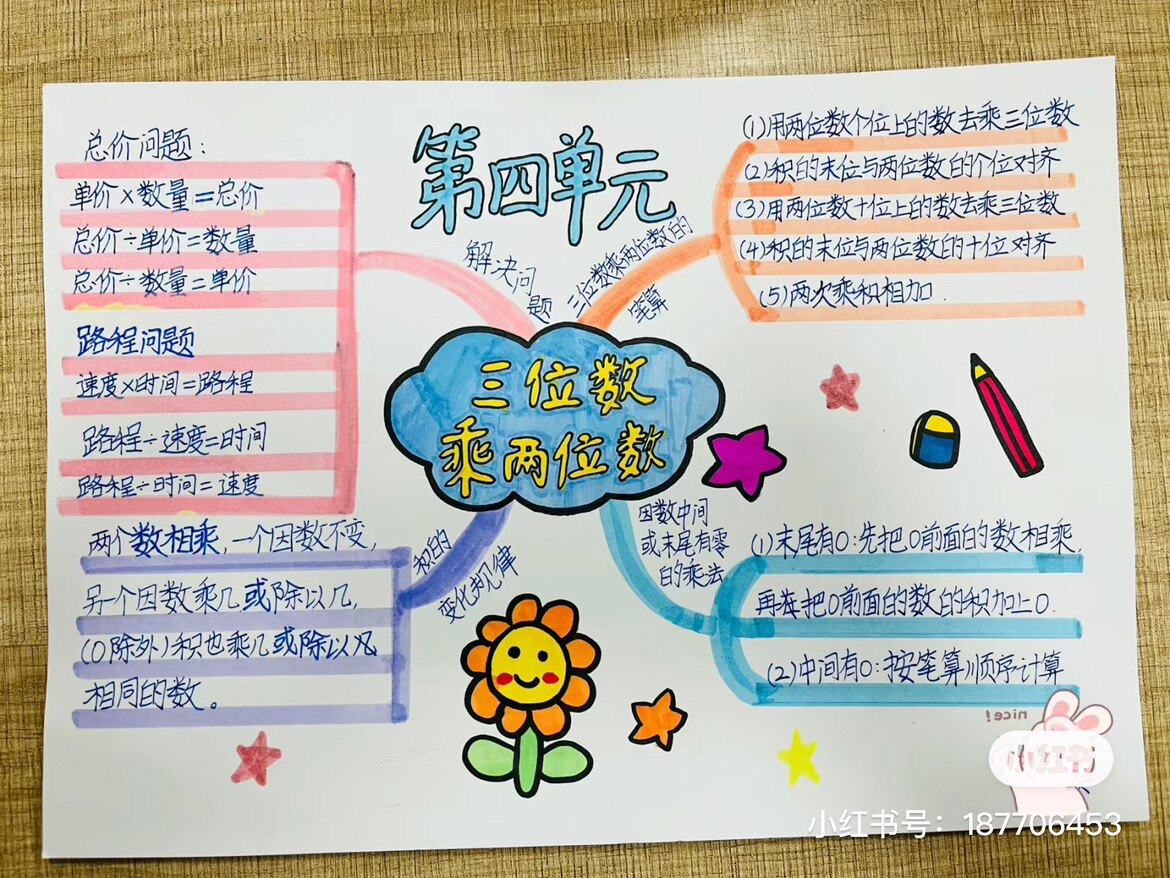 第四单元
三位数
乘两位数
解决问
题
总价问题：
单价×数量=总价
总价÷单价=数量
总价÷数量=单价
路程问题
速度×时间=路程
路程÷速度=时间
路程÷时间=速度
三位数乘两位数的
笔算
(1)用两位数个位上的数去乘三位数
(2)积的末位与两位数的个位对齐
(3)用两位数十位上的数去乘三位数
(4)积的末位与两位数的十位对齐
(5)两次乘积相加.
积的
变化规律
两个数相乘,一个因数不变,
另一个因数乘几或除以几,
(0除外)积也乘几或除以几
相同的数。
因数中间
或末尾有零
的乘法
(1)末尾有0:先把0前面的数相乘,
再把0前面的数的积加上0.
(2)中间有0:按笔算顺序计算
nice!
小红书
小红书号：187706453